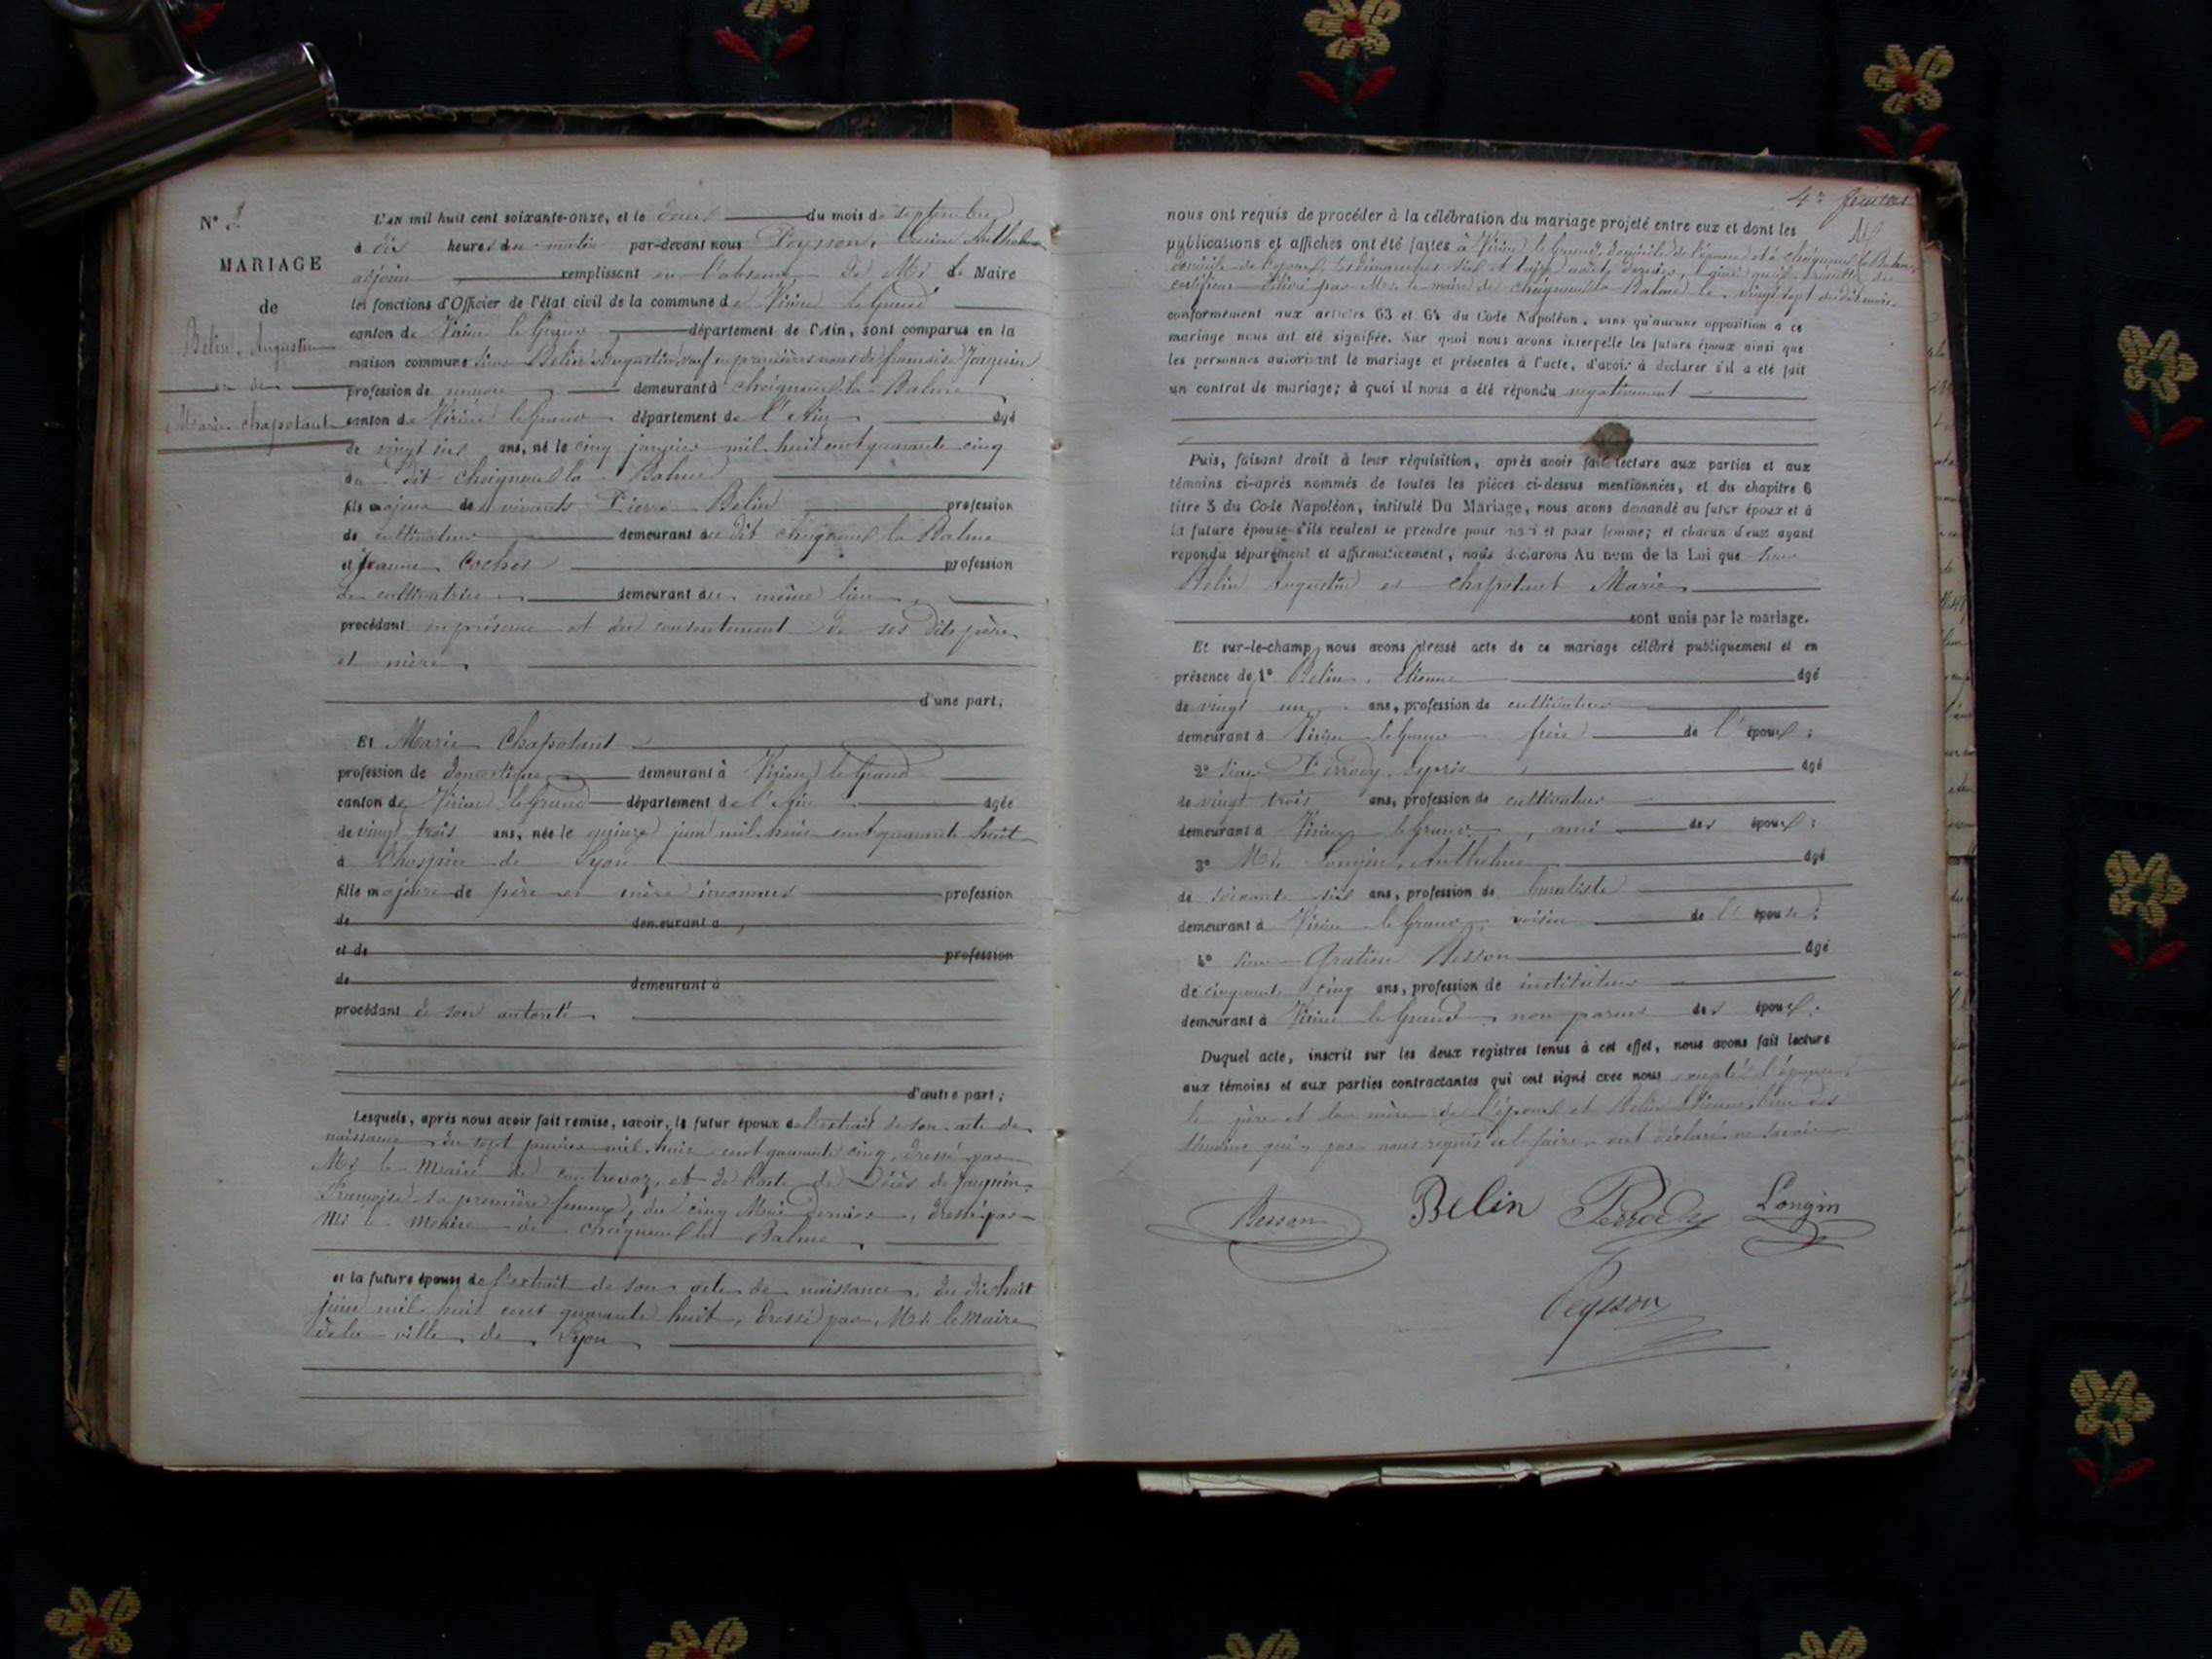 N° 3
MARIAGE
de
Belin, Augustin
et de
Marie Chapotant
L'AN mil huit cent soixante-onze, et le deux du mois de septembre
à dix heures du matin par-devant nous Peysson, Anthelme
adjoint remplissant en l'absence de Mr le Maire
les fonctions d'Officier de l'état civil de la commune de Virieu le Grand
canton de Virieu le Grand département de l'Ain, sont comparus en la
maison commune sieur Belin Augustin, veuf en premières noces de françoise Jacquin
profession de maçon demeurant à cheignieu la Balme
canton de Virieu le Grand département de l'Ain âgé
de vingt six ans, né le cinq janvier mil huit cent quarante cinq
au dit cheignieu la Balme
fils majeur de vivants Pierre Belin profession
de cultivateur demeurant au dit cheignieu la Balme
et Jeanne Cochet profession
de cultivatrice demeurant au même lieu
procédant en présence et du consentement de ses dits père
et mère
d'une part;
Et Marie Chapotant
profession de domestique demeurant à Virieu le Grand
canton de Virieu le Grand département de l'Ain âgée
de vingt trois ans, née le quinze juin mil huit cent quarante huit
à l'hospice de Lyon
fille majeure de père et mère inconnus profession
de demeurant à
et de profession
de demeurant à
procédant de son autorité
d'autre part;
Lesquels, après nous avoir fait remise, savoir, le futur époux de l'extrait de son acte de
naissance du sept janvier mil huit cent quarante cinq, dressé par
Mr le Maire de contrevoz, et de l'acte de Décès de Jacquin
Françoise sa première femme, du cinq Mai dernier, dressé par
Mr le Maire de cheignieu la Balme
et la future épouse de l'extrait de son acte de naissance, du dix huit
juin mil huit cent quarante huit, dressé par Mr le Maire
de la ville de Lyon
4e feuillet
nous ont requis de procéder à la célébration du mariage projeté entre eux et dont les
publications et affiches ont été faites à Virieu le Grand, domicile de l'épouse et à cheignieu la Balme,
domicile de l'époux, les dimanches six et treize août dernier, ainsi qu'il résulte du
certificat délivré par Mr le maire de cheignieu la Balme le vingt sept du dit mois
conformément aux articles 63 et 64 du Code Napoléon, sans qu'aucune opposition à ce
mariage nous ait été signifiée. Sur quoi nous avons interpellé les futurs époux ainsi que
les personnes autorisant le mariage et présentes à l'acte, d'avoir à déclarer s'il a été fait
un contrat de mariage; à quoi il nous a été répondu négativement
Puis, faisant droit à leur réquisition, après avoir fait lecture aux parties et aux
témoins ci-après nommés de toutes les pièces ci-dessus mentionnées, et du chapitre 6
titre 5 du Code Napoléon, intitulé Du Mariage, nous avons demandé au futur époux et à
la future épouse s'ils veulent se prendre pour mari et pour femme; et chacun d'eux ayant
répondu séparément et affirmativement, nous déclarons Au nom de la Loi que sieur
Belin Augustin et chapotant Marie
sont unis par le mariage.
Et sur-le-champ nous avons dressé acte de ce mariage célébré publiquement et en
présence de 1° Belin, Etienne âgé
de vingt un ans, profession de cultivateur
demeurant à Virieu le Grand frère de l'époux;
2° sieur Perrody âgé
de vingt trois ans, profession de cultivateur
demeurant à Virieu le Grand, ami des époux;
3° Mr Longin, Anthelme âgé
de soixante six ans, profession de buraliste
demeurant à Virieu le Grand, voisin de l'épouse;
4° sieur Gratien Besson âgé
de cinquante cinq ans, profession de instituteur
demeurant à Virieu le Grand non parent des époux.
Duquel acte, inscrit sur les deux registres tenus à cet effet, nous avons fait lecture
aux témoins et aux parties contractantes qui ont signé avec nous excepté l'épouse,
le père et la mère de l'époux et Belin Etienne, l'un des
témoins qui, par nous requis de le faire, ont déclaré ne savoir
Besson Belin Perrody Longin
Peysson